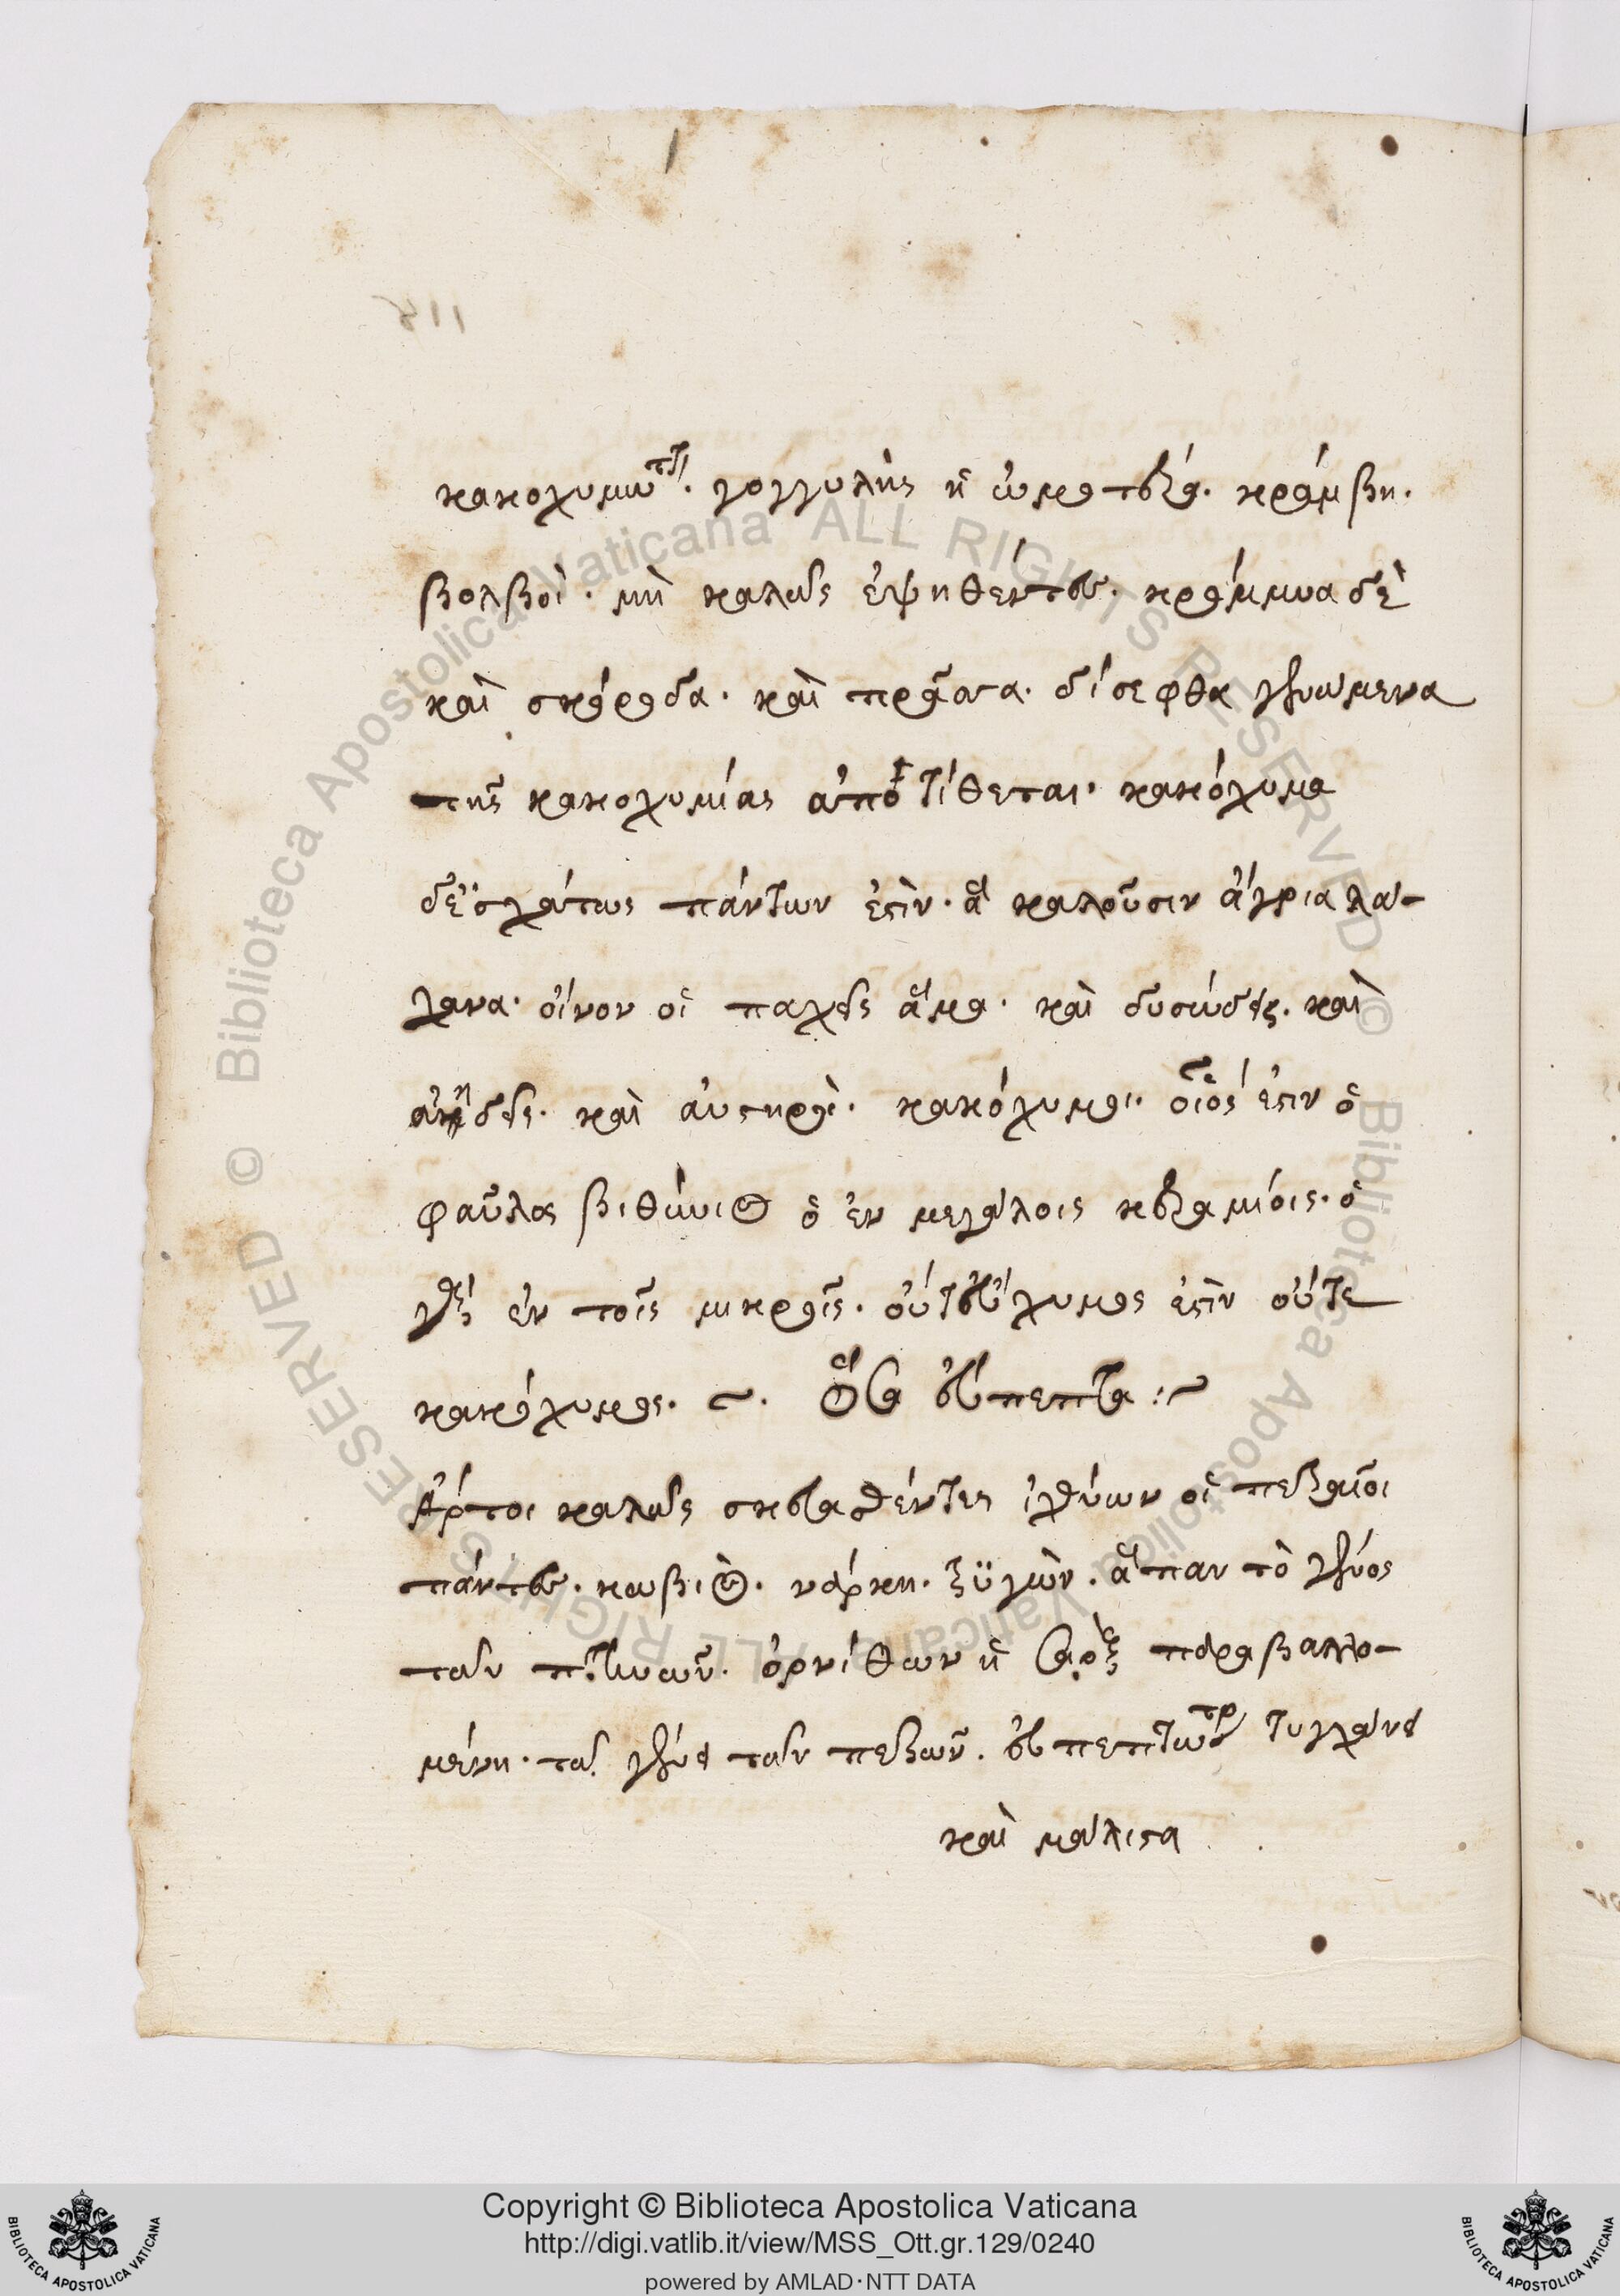 κακοχυμωτ. γογγυλὶς ἡ ὠμοτέρα. κράμβη.
βολβοὶ. μὴ καλῶς ἑψηθέντες. κρόμμυα δὲ
καὶ σκόροδα. καὶ πρᾶσα. δίσεφθα γενόμενα
τῆς κακοχυμίας ἀποτίθεται. κακόχυμα
δὲ ἐσχάτως πάντων ἐστὶν. ἃ καλοῦσιν ἄγρια λά-
χανα. οἶνον οἱ παχεῖς ἅμα. καὶ δυσώδεις. καὶ
ἀηδεῖς. καὶ αὐστηροὶ. κακόχυμοι. οἷός ἐστιν ὁ
φαῦλος βιθύνιος ὁ ἐν μεγάλοις κεραμίοις. ὁ
γὰρ ἐν τοῖς μικροῖς. οὔτε εὔχυμος ἐστὶν οὔτε
κακόχυμος. ~. Ὅσα εὔπεπτα :~
Ἄρτοι καλῶς σκευασθέντες ἰχθύων οἱ πετραῖοι
πάντες. κωβιὸς. νάρκη. ξϋγὼν. ἅπαν τὸ γένος
τῶν πτηνῶν. ὀρνίθων ἡ σὰρξ παραβαλλο-
μένη. τῷ γένει τῶν πεζῶν. εὐπεπτωτέρ τυγχάνει
καὶ μάλιστα
Copyright © Biblioteca Apostolica Vaticana
http://digi.vatlib.it/view/MSS_Ott.gr.129/0240
powered by AMLAD·NTT DATA